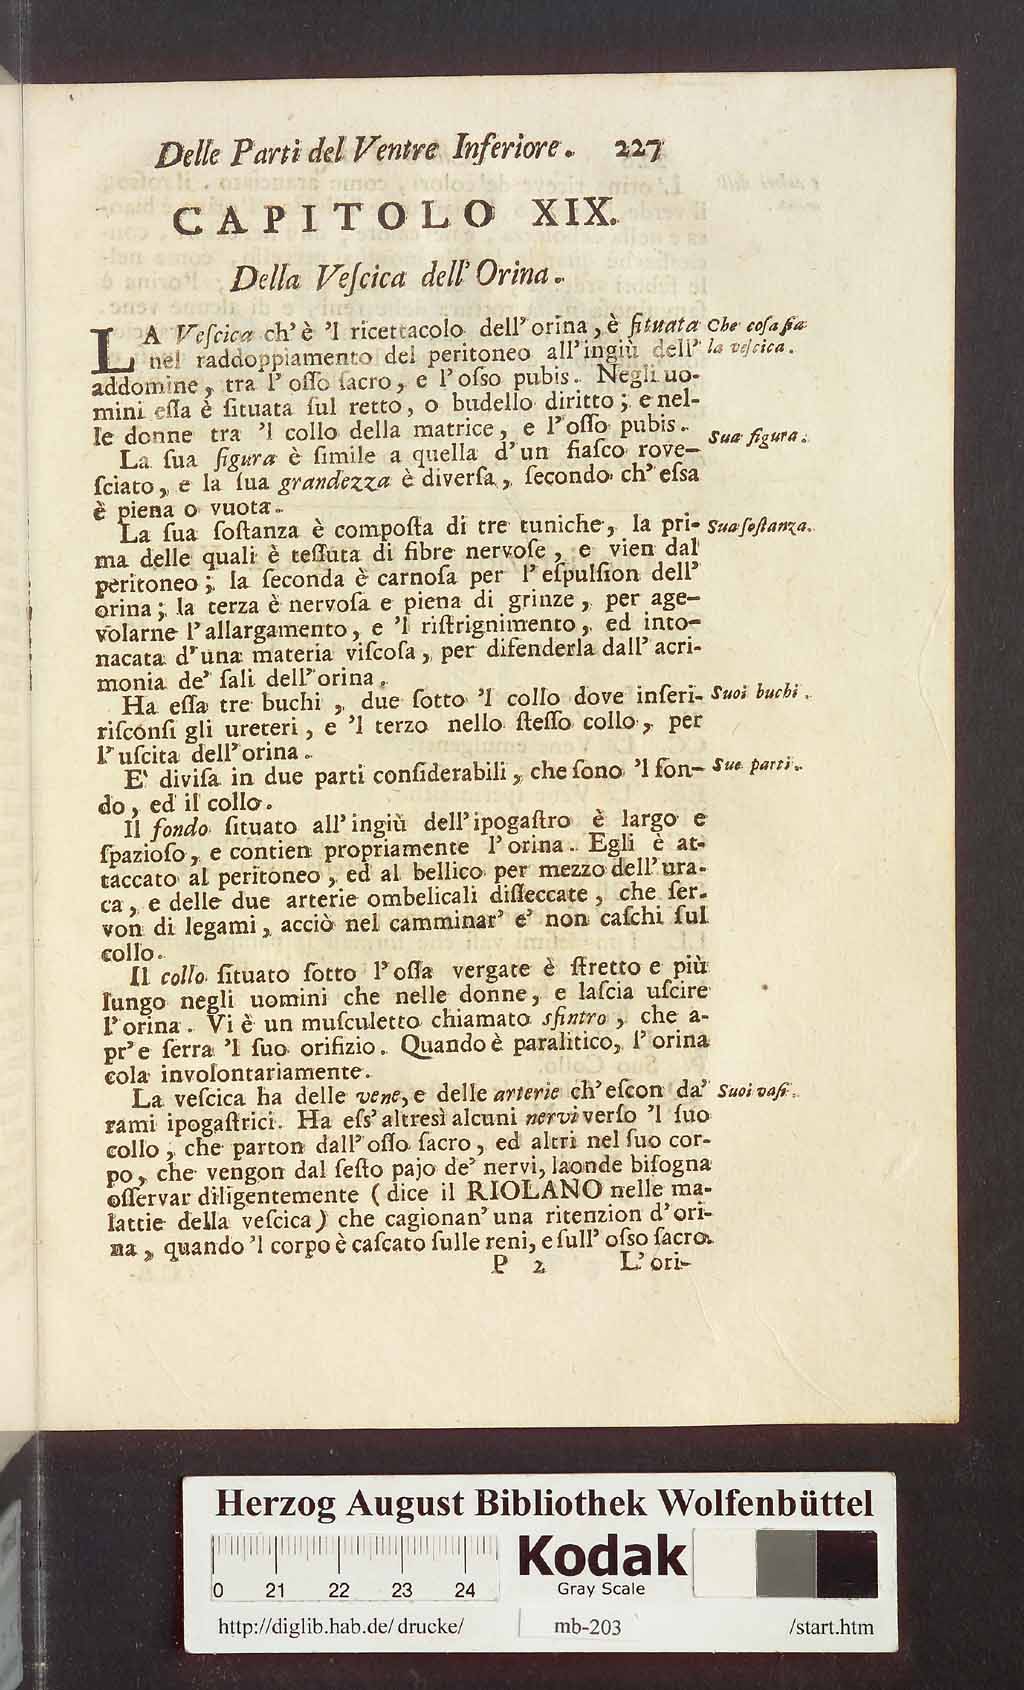 Delle Parti del Ventre Inferiore. 227
CAPITOLO XIX.
Della Veſcica dell' Orina.
LA Veſcica ch' è 'l ricettacolo dell' orina, è ſituata
Che coſa ſia
nel raddoppiamento del peritoneo all' ingiù dell'
la veſcica.
addomine, tra l' oſſo ſacro, e l' oſso pubis. Negli uo-
mini eſſa è ſituata ſul retto, o budello diritto; e nel-
le donne tra 'l collo della matrice, e l' oſſo pubis.
Sua figura.
La ſua figura è ſimile a quella d' un fiaſco rove-
ſciato, e la ſua grandezza è diverſa, ſecondo ch' eſsa
è piena o vuota.
La ſua ſoſtanza è compoſta di tre tuniche, la pri-
Sua ſoſtanza.
ma delle quali è teſſuta di fibre nervoſe, e vien dal
peritoneo; la ſeconda è carnoſa per l' eſpulſion dell'
orina; la terza è nervoſa e piena di grinze, per age-
volarne l' allargamento, e 'l riſtrignimento, ed into-
nacata d' una materia viſcoſa, per difenderla dall' acri-
monia de' ſali dell' orina.
Ha eſſa tre buchi, due ſotto 'l collo dove inſeri-
Suoi buchi.
riſconſi gli ureteri, e 'l terzo nello ſteſſo collo, per
l' uſcita dell' orina.
E' diviſa in due parti conſiderabili, che ſono 'l fon-
Sue parti.
do, ed il collo.
Il fondo ſituato all' ingiù dell' ipogaſtro è largo e
ſpazioſo, e contien propriamente l' orina. Egli è at-
taccato al peritoneo, ed al bellico per mezzo dell' ura-
ca, e delle due arterie ombelicali diſſeccate, che ſer-
von di legami, acciò nel camminar' e' non caſchi ſul
collo.
Il collo ſituato ſotto l' oſſa vergate è ſtretto e più
lungo negli uomini che nelle donne, e laſcia uſcire
l' orina. Vi è un muſculetto chiamato sfintro, che a-
pr' e ſerra 'l ſuo orifizio. Quando è paralitico, l' orina
cola involontariamente.
La veſcica ha delle vene, e delle arterie ch' eſcon da'
Suoi vaſi.
rami ipogaſtrici. Ha eſs' altresì alcuni nervi verſo 'l ſuo
collo, che parton dall' oſſo ſacro, ed altri nel ſuo cor-
po, che vengon dal ſeſto pajo de' nervi, laonde biſogna
oſſervar diligentemente (dice il RIOLANO nelle ma-
lattie della veſcica) che cagionan' una ritenzion d' ori-
na, quando 'l corpo è caſcato ſulle reni, e ſull' oſso ſacro.
P 2 L' ori-
Herzog August Bibliothek Wolfenbüttel
Kodak
Gray Scale
0 21 22 23 24
http://diglib.hab.de/drucke/ mb-203 /start.htm